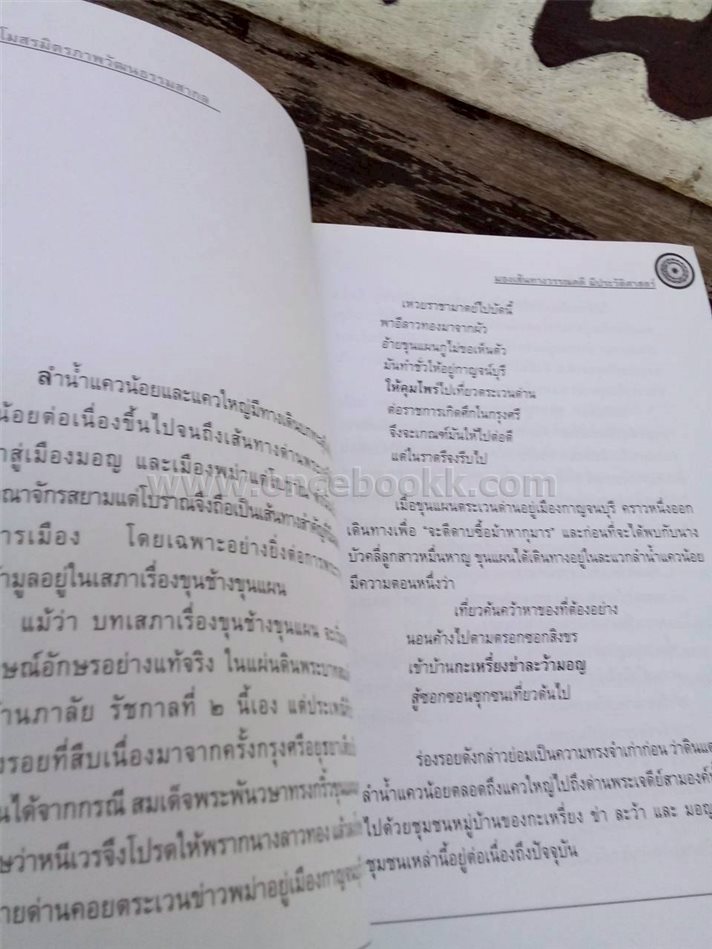 โมสรมิตรภาพวัฒนธรรมสากล
ลำน้ำแควน้อยและแควใหญ่มีทางเดินบก
น้อยต่อเนื่องขึ้นไปจนถึงเส้นทางด่านพระ
าสู่เมืองมอญ และเมืองพม่าแต่โบราณ
ณาจักรสยามแต่โบราณจึงถือเป็นเส้นทางสำคัญ
การเมือง โดยเฉพาะอย่างยิ่งต่อการ
ามูลอยู่ในเสภาเรื่องขุนช้างขุนแผน
แม้ว่า บทเสภาเรื่องขุนช้างขุนแผน
ษณ์อักษรอย่างแท้จริง ในแผ่นดินพระบาท
้านภาลัย รัชกาลที่ ๒ นี้เอง แต่ประเพณี
งรอยที่สืบเนื่องมาจากครั้งกรุงศรีอยุธยา
นได้จากกรณี สมเด็จพระพันวษาทรงกริ้วขุนแผน
ษว่าหนีเวรจึงโปรดให้พรากนางลาวทอง
ายด่านคอยตระเวนข่าวพม่าอยู่เมืองกาญจนบุรี
มองเส้นทางวรรณคดี มีประวัติศาสตร์
เหวยราชามาตย์ไปบัดนี้
พาอีลาวทองมาจากผัว
อ้ายขุนแผนกูไม่ขอเห็นตัว
มันทำชั่วให้อยู่กาญจน์บุรี
ให้คุมไพร่ไปเที่ยวตระเวนด่าน
ต่อราชการเกิดศึกในกรุงศรี
จึงจะเกณฑ์มันให้ไปต่อตี
แต่ในราตรีจงรีบไป
www.oncebookk.com
เมื่อขุนแผนตระเวนด่านอยู่เมืองกาญจนบุรี คราวหนึ่งออก
เดินทางเพื่อ “จะตีดาบซื้อม้าหากุมาร” และก่อนที่จะได้พบกับนาง
บัวคลี่ลูกสาวหมื่นหาญ ขุนแผนได้เดินทางอยู่ในละแวกลำน้ำแควน้อย
มีความตอนหนึ่งว่า
เที่ยวค้นคว้าหาของที่ต้องอย่าง
นอนค้างไปตามตรอกซอกสิงขร
เข้าบ้านกะเหรี่ยงข่าละว้ามอญ
สู้ซอกซอนซุกซนเที่ยวด้นไป
ร่องรอยดังกล่าวย่อมเป็นความทรงจำเก่าก่อน ว่าดินแดน
ลำน้ำแควน้อยตลอดถึงแควใหญ่ไปถึงด่านพระเจดีย์สามองค์
ไปด้วยชุมชนหมู่บ้านของกะเหรี่ยง ข่า ละว้า และ มอญ
ชุมชนเหล่านี้อยู่ต่อเนื่องถึงปัจจุบัน